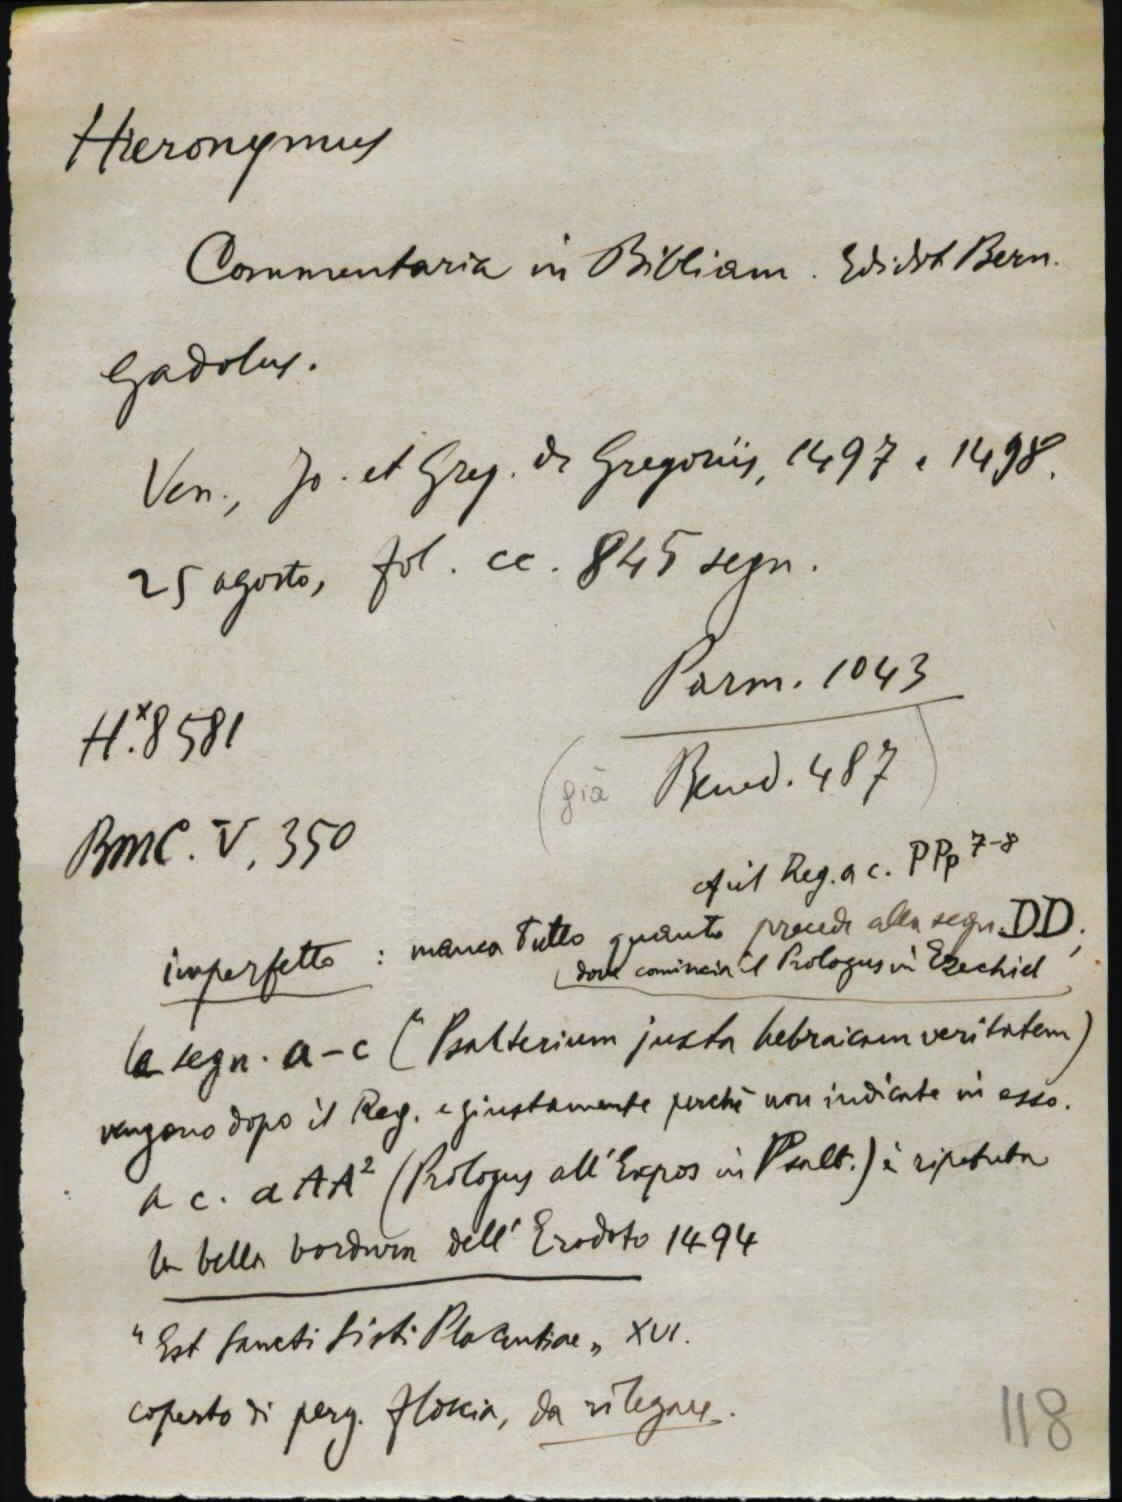 Hieronymus
Commentaria in Bibliam. Edidit Bern.
Gadolus.
Ven., Jo. et Greg. de Gregoriis, 1497 e 1498.
25 agosto, fol. cc. 845 segn.
Parm. 1043
H.x8581
(già Bened. 487)
BMC. V, 350
il Reg. a c. PPp 7-8
imperfetto : manca tutto quanto precede alla segn. DD;
dove comincia il Prologus in Ezechiel
le segn. a-c ("Psalterium juxta hebraicam veritatem)
vengono dopo il Reg. e giustamente perchè non indicate in esso.
a c. aAA2 (Prologus all'Expos in Psalt.) è ripetuta
la bella bordura dell'Erodoto 1494
"Est Sancti Sisti Placentiae" XVI.
coperto di perg. floscia, da rilegare.
118